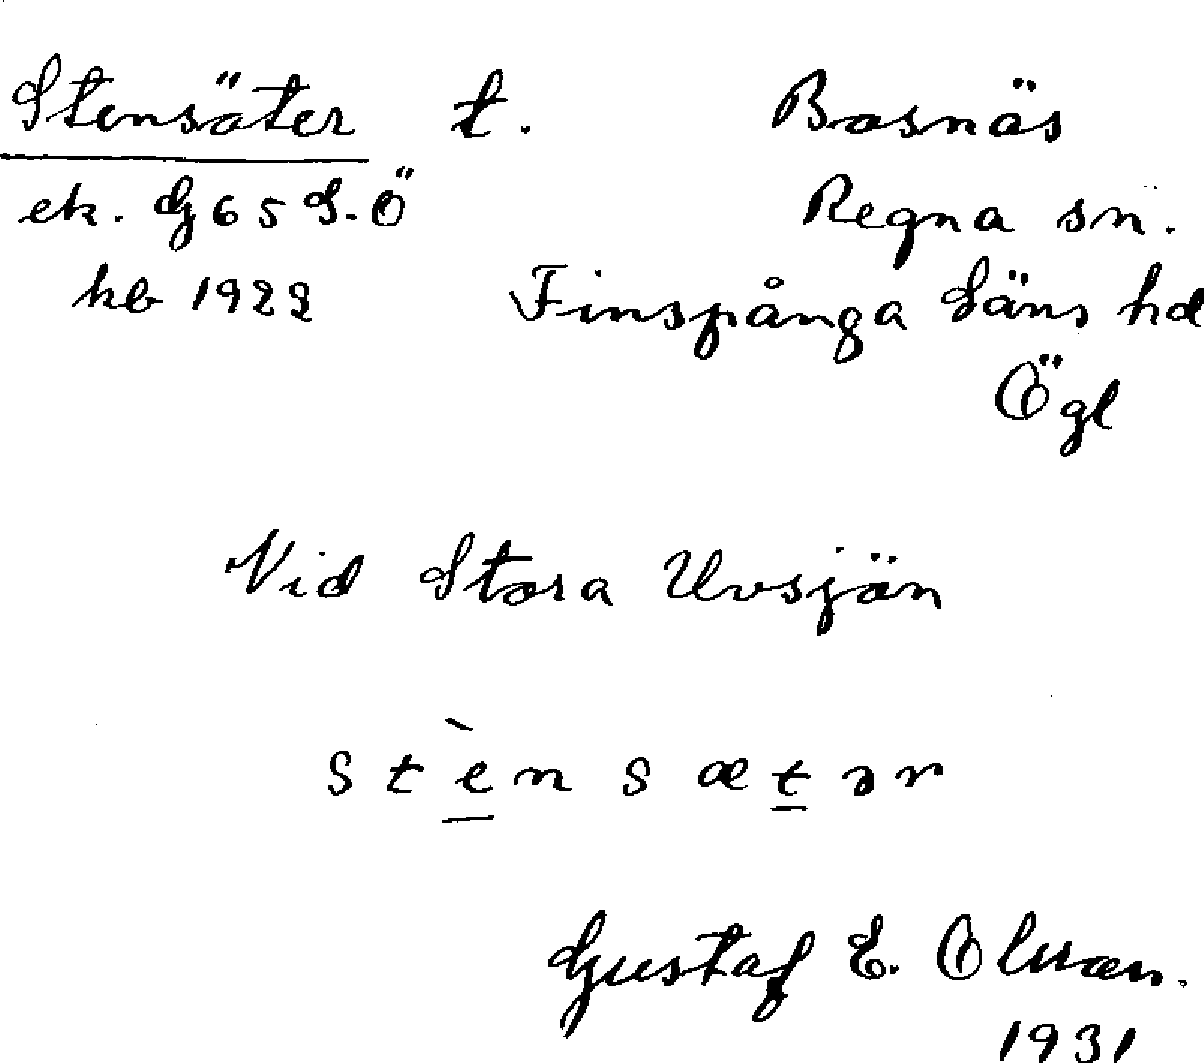 Stensäter t. Bosnäs
ek. G 65 S.Ö Regna sn.
hb 1922 Finspånga Läns hd
Ögl
Vid Stora Uvsjön
stènsætər
Gustaf E. Olsson.
1931